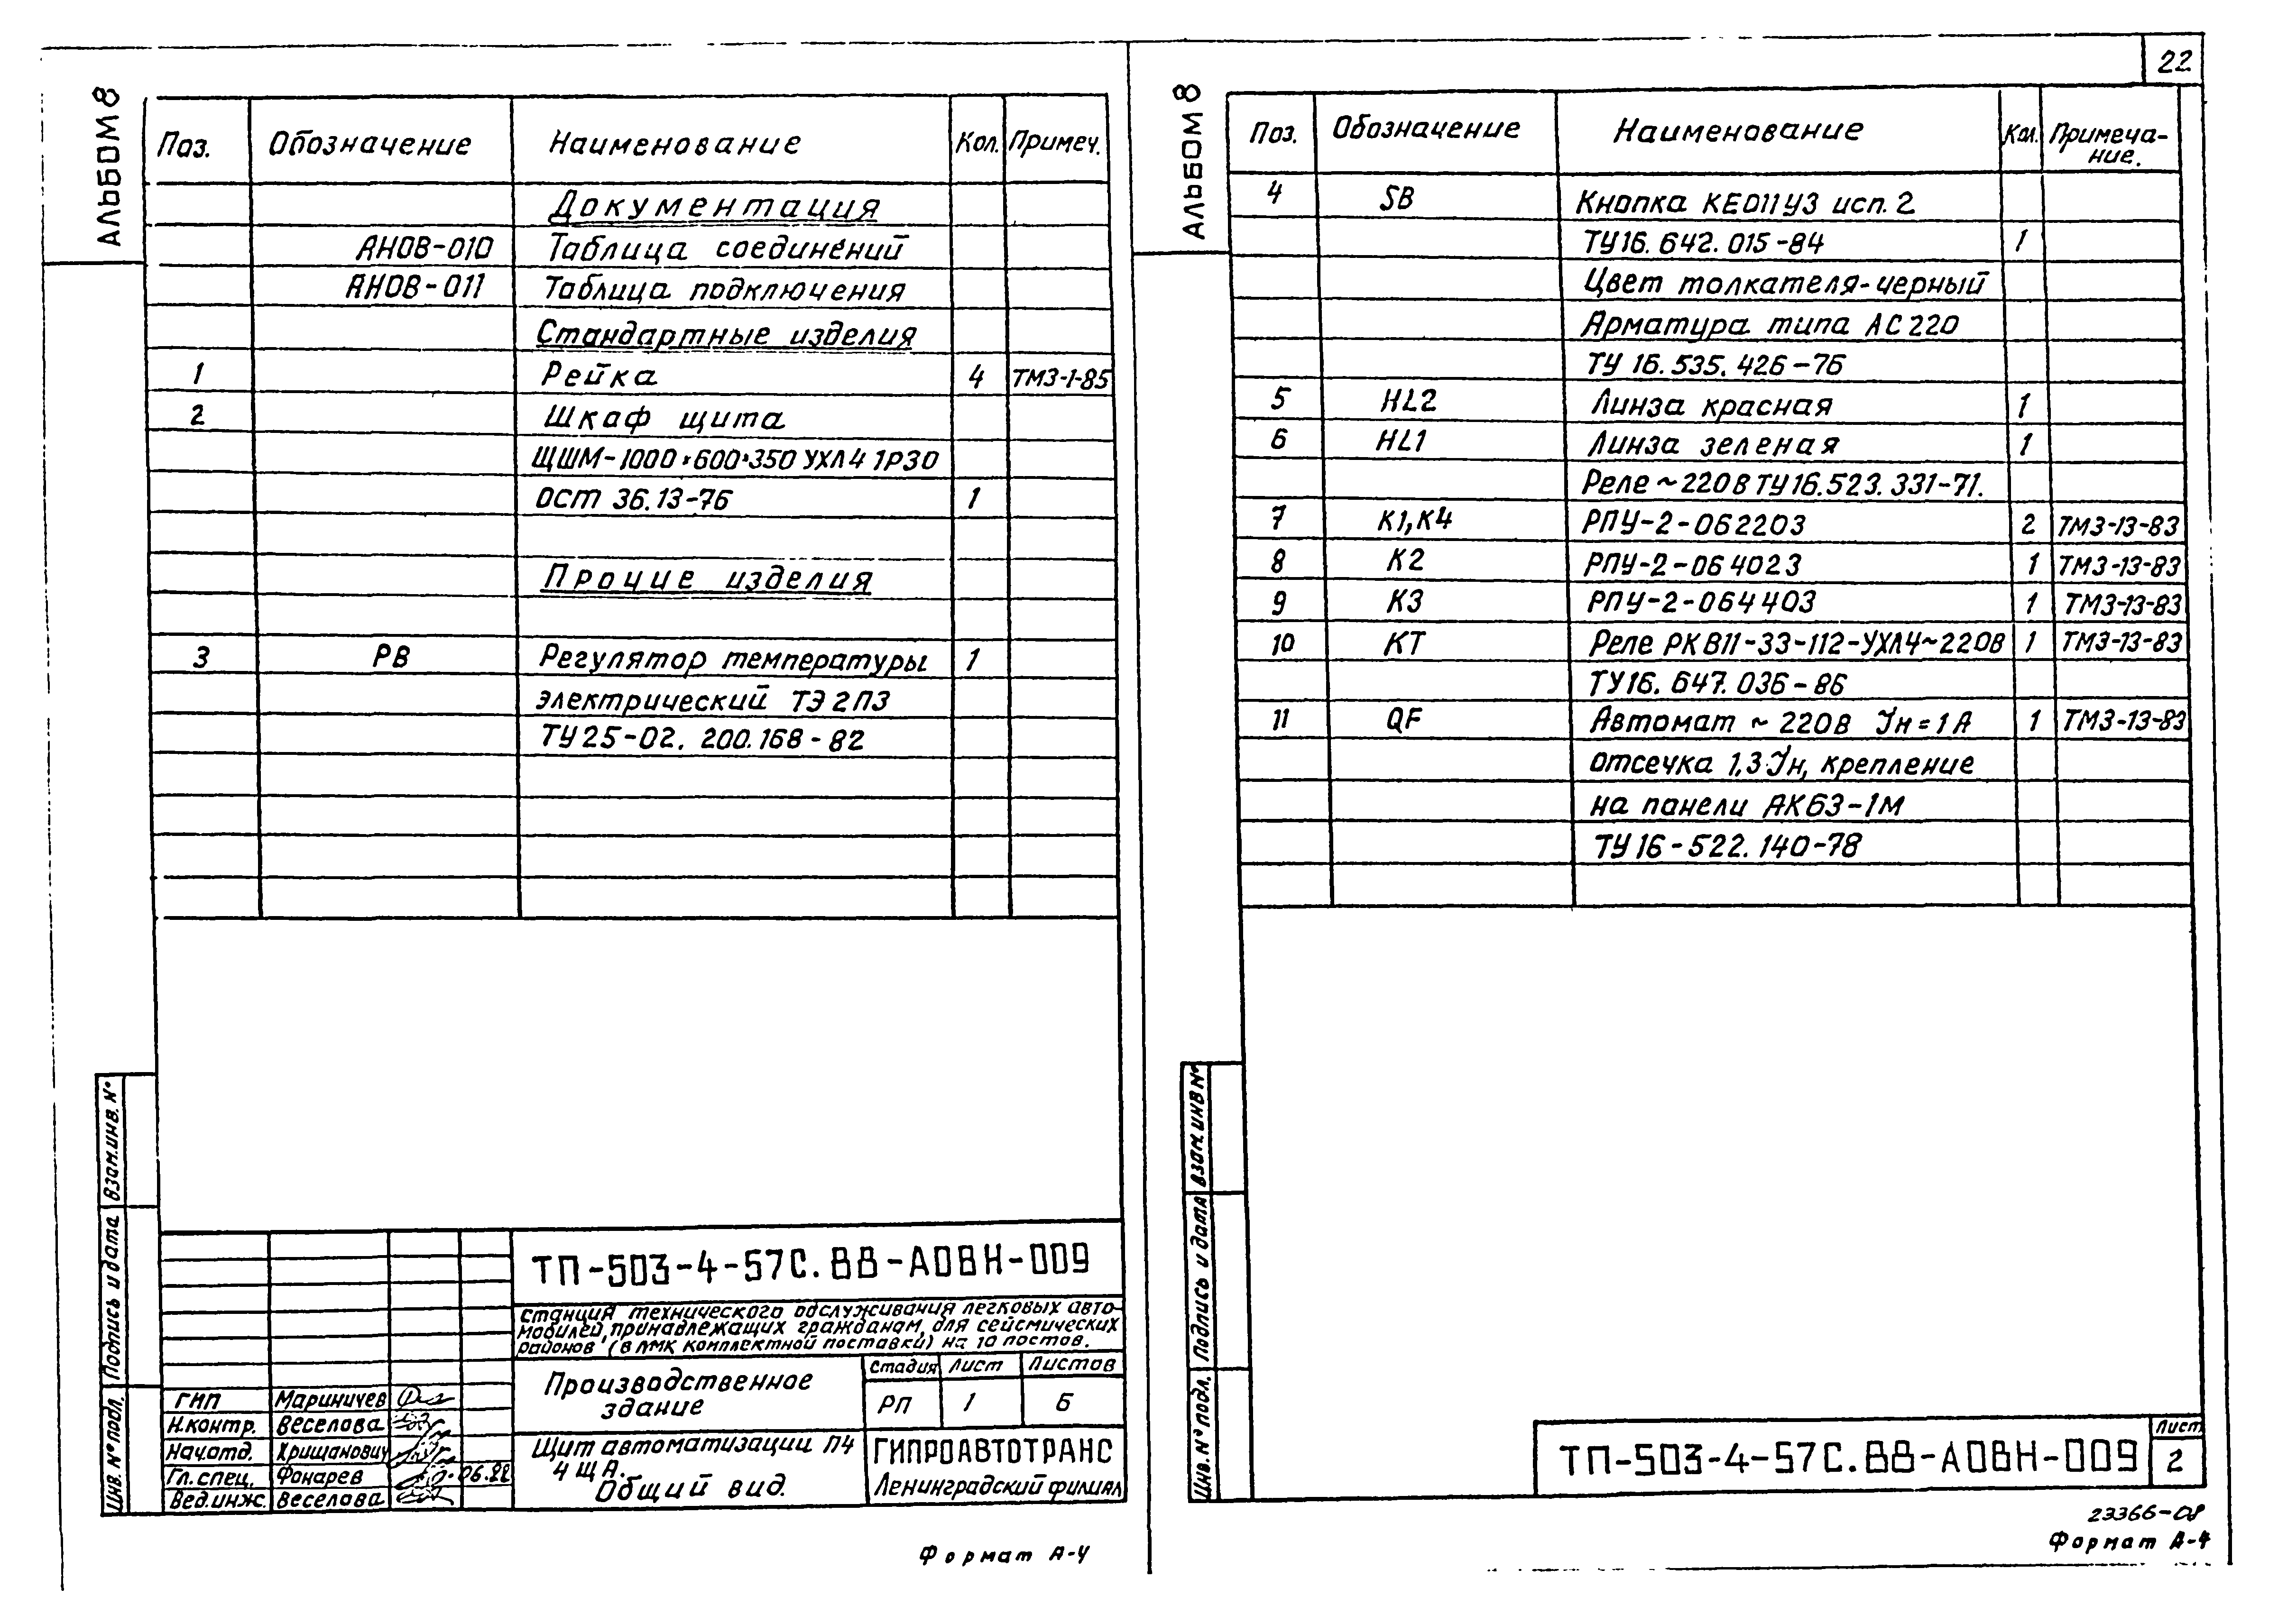 АЛЬБОМ 8
Поз. Обозначение Наименование Кол. Примеч.
Документация
АНОВ-010 Таблица соединений
АНОВ-011 Таблица подключения
Стандартные изделия
1 Рейка 4 ТМ3-1-85
2 Шкаф щита
ЩШМ-1000×600×350 УХЛ4 1Р30
ОСТ 36.13-76 1
Прочие изделия
3 РВ Регулятор температуры 1
электрический ТЭ2П3
ТУ25-02.200.168-82
Взам.инв.№
Подпись и дата
Инв.№ подл.
ТП-503-4-57С.88-АОВН-009
Станция технического обслуживания легковых авто-
мобилей, принадлежащих гражданам, для сейсмических
районов (в ЛМК комплектной поставки) на 10 постов.
Производственное
здание
Стадия Лист Листов
РП 1 6
ГИП Мариничев
Н.контр. Веселова
Нач.отд. Хрищанович
Гл.спец. Фонарев 06.88
Вед.инж. Веселова
Щит автоматизации П4
4ЩА.
Общий вид.
ГИПРОАВТОТРАНС
Ленинградский филиал
Формат А-4
22
АЛЬБОМ 8
Поз. Обозначение Наименование Кол. Примеча-
ние.
4 SB Кнопка КЕ011У3 исп.2
ТУ16.642.015-84 1
Цвет толкателя-черный
Арматура типа АС220
ТУ 16.535.426-76
5 HL2 Линза красная 1
6 HL1 Линза зеленая 1
Реле ~220В ТУ16.523.331-71.
7 К1,К4 РПУ-2-062203 2 ТМ3-13-83
8 К2 РПУ-2-064023 1 ТМ3-13-83
9 К3 РПУ-2-064403 1 ТМ3-13-83
10 КТ Реле РКВ11-33-112-УХЛ4~220В 1 ТМ3-13-83
ТУ16.647.036-86
11 QF Автомат ~220В Iн=1А 1 ТМ3-13-83
отсечка 1,3·Iн, крепление
на панели АК63-1М
ТУ16-522.140-78
Взам.инв№
Подпись и дата
Инв.№ подл.
ТП-503-4-57С.88-АОВН-009
Лист
2
23366-08
Формат А-4